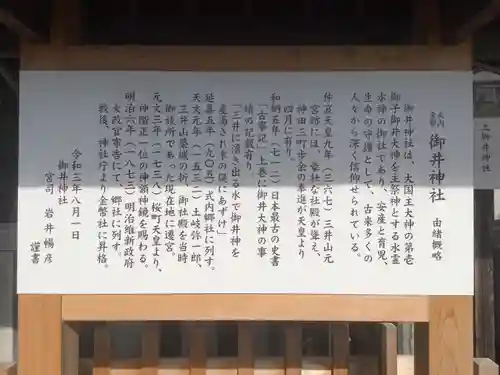 式内
金幣社
御井神社　由緒概略
御井神社は、大国主大神の第壱
御子御井大神を主祭神とする水霊
水徳の御社であり、安産と育児、
生命の守護として、古来多くの
人々から深く信仰せられている。
仲哀天皇九年（三六七）三井山元
宮跡には、荘社な社殿が聳え、
神田三町歩余の奉進が天皇より
四月に有り。
和銅五年（七一二）日本最古の史書
「古事記」上巻に御井大神の事
績の記載有り
「三井に湧き出る水で御井神を
産湯され幸の保てあすけ」
延喜五年（九〇五）式内郷社に列す。
天文元年（一五三二）土岐弥一郎、
三井山築城の折、御社殿を当時
御旅所であった現在地に遷宮。
元文三年（一七三八）桜町天皇より、
神階正一位の神額神鏡を賜わる。
明治六年（一八七三）明治維新政府
太政官布告にて、郷社に列す。
戦後、神社庁より金幣社に昇格。
令和三年八月一日
御井神社
宮司　岩井　暢彦
謹書
御井神社